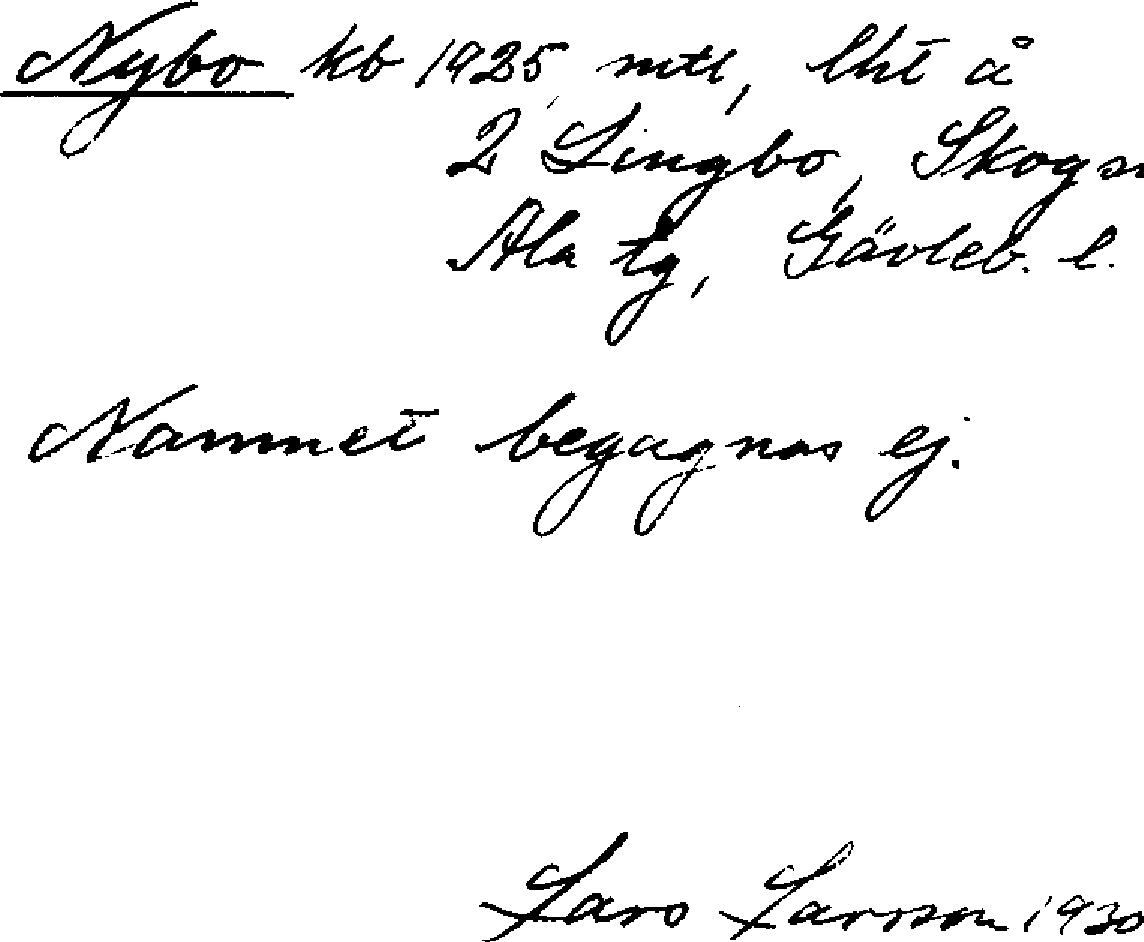 Nybo kb 1925, mtl, lht å
2 Lingbo, Skogs
Ala tg, Gävleb. l.
Namnet begagnas ej.
Lars Larsson 1930